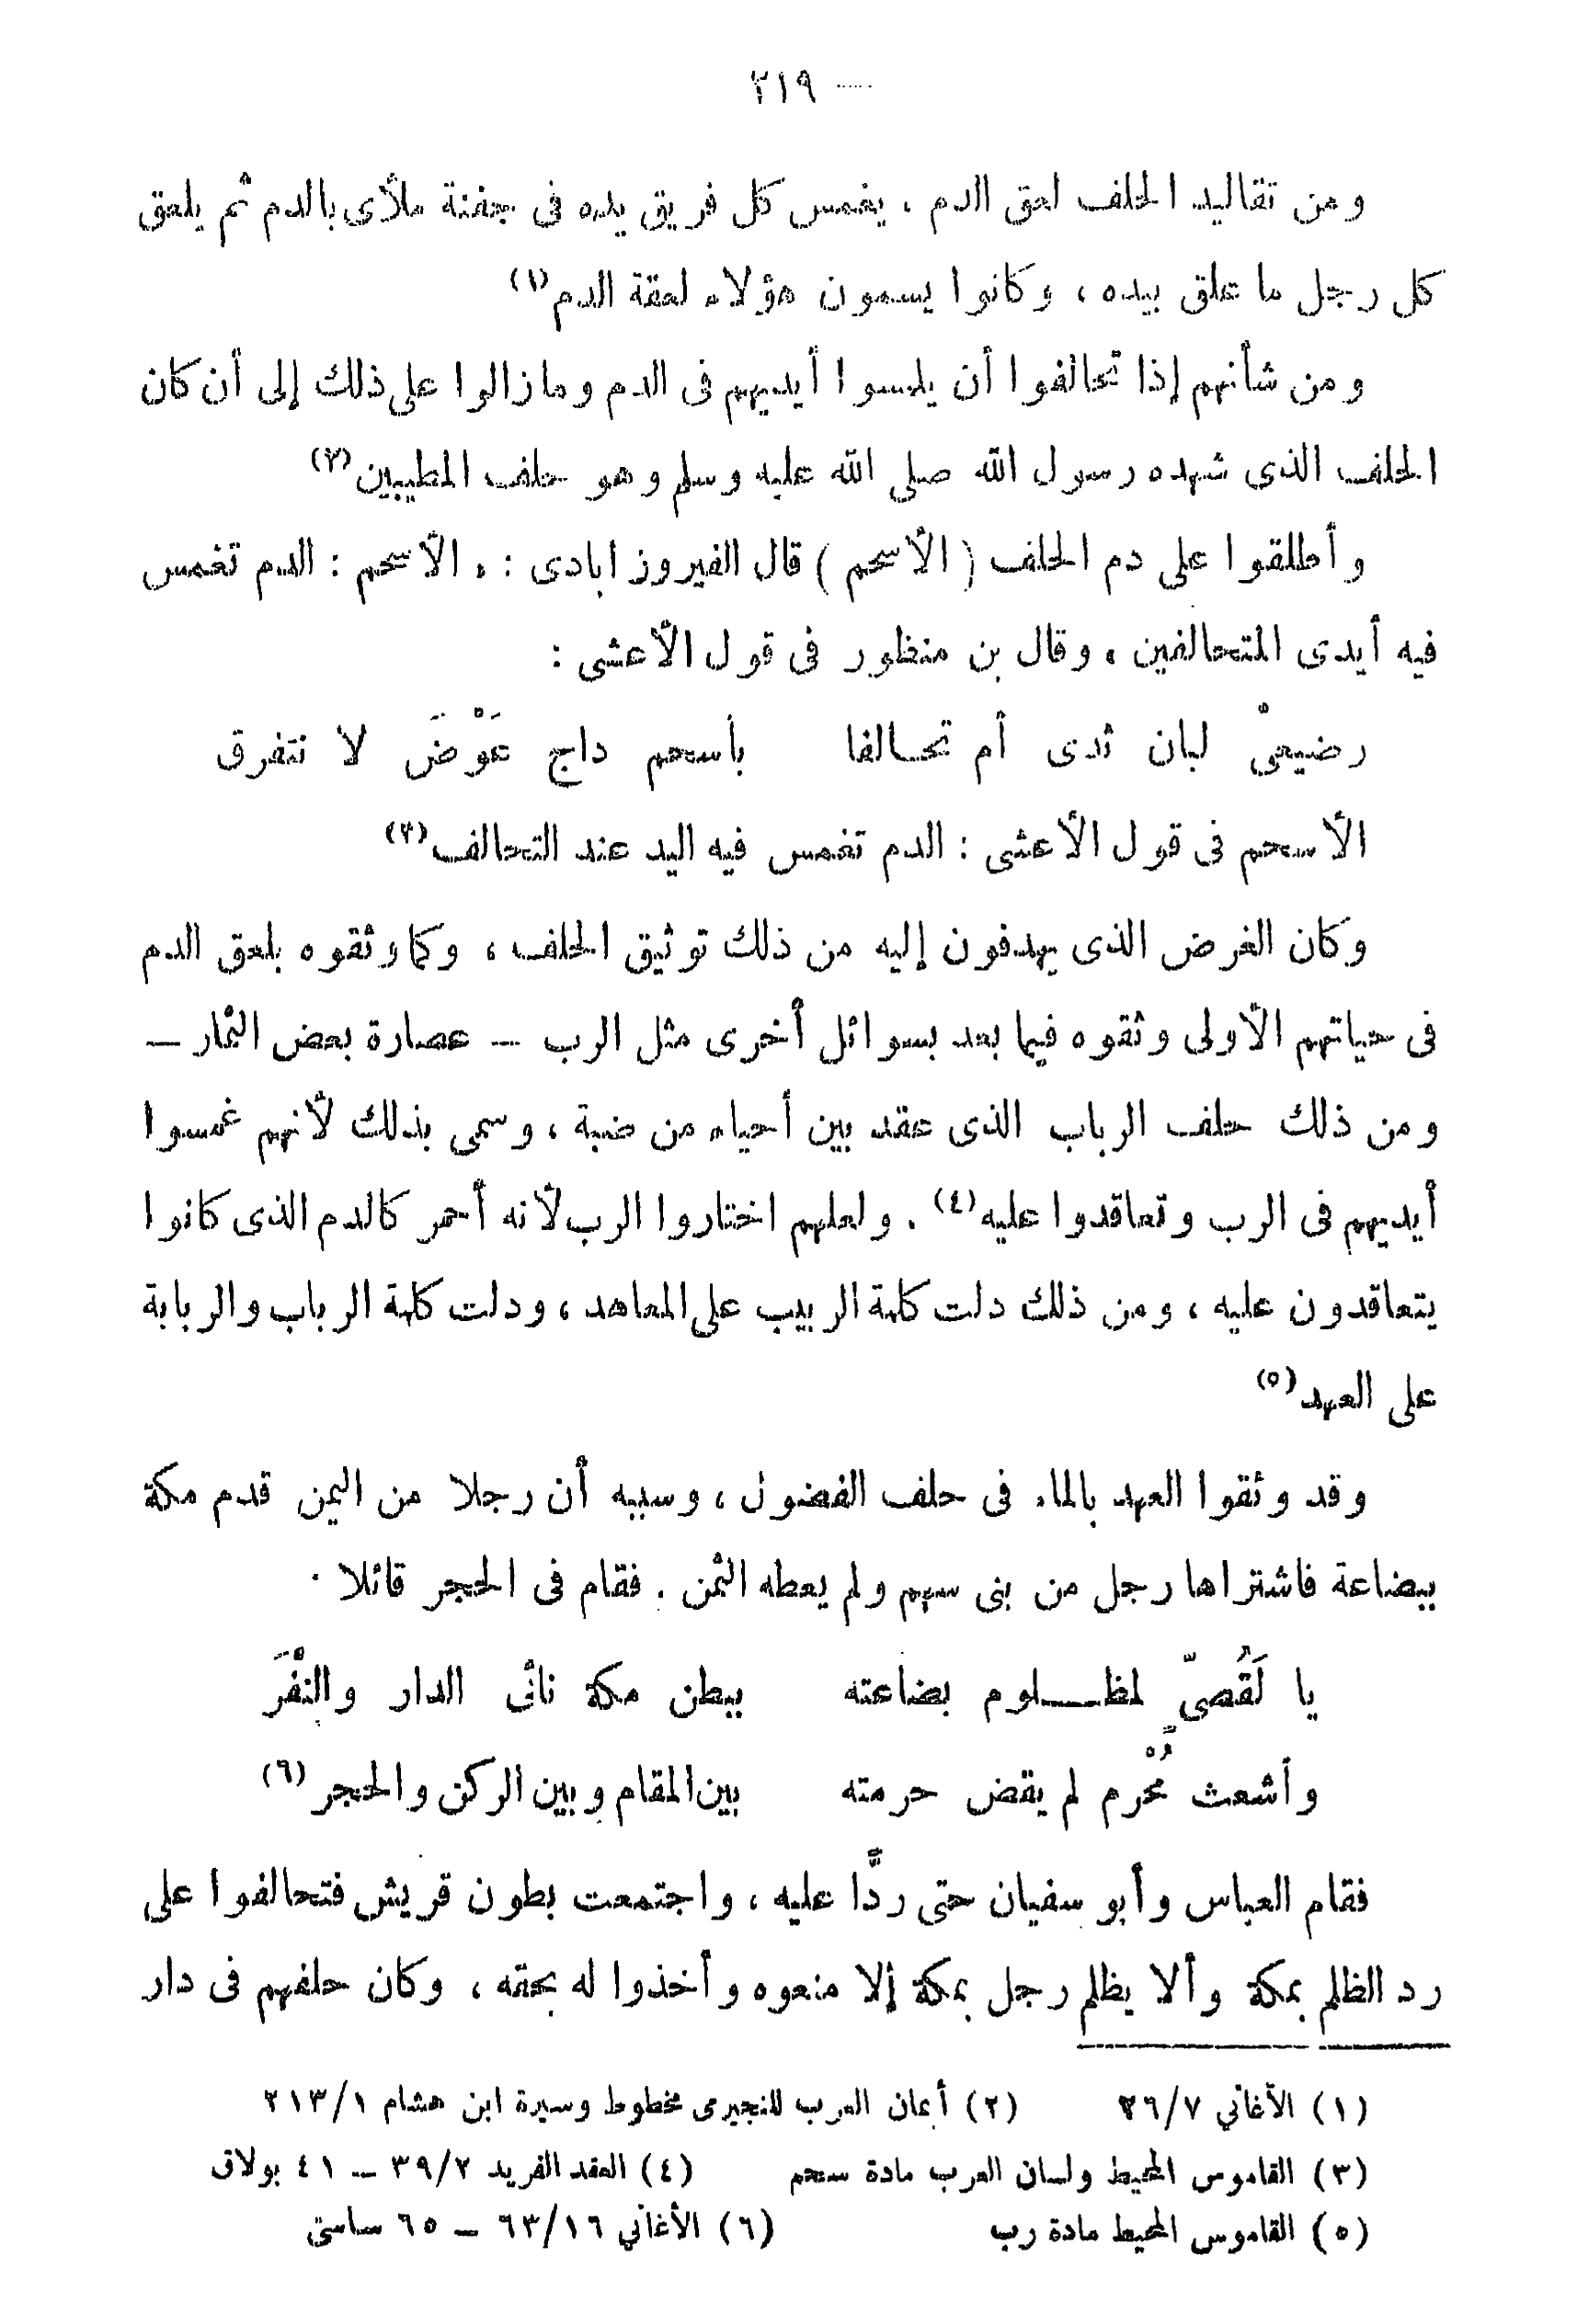 — ٢١٩
ومن تقاليد الحلف لعق الدم . يغمس كل فريق يده فى جفنة ملأى بالدم ثم يلعق
كل رجل ما علق بيده ، وكانوا يسمون هؤلاء لعقة الدم(١)
ومن شأنهم إذا تحالفوا أن يلمسوا أيديهم فى الدم وما زالوا على ذلك إلى أن كان
الحلف الذى شهده رسول الله صلى الله عليه وسلم وهو حلف المطيبين(٢)
وأطلقوا على دم الحلف ( الأسحم ) قال الفيروزابادى : « الأسحم : الدم تغمس
فيه أيدى المتحالفين ، وقال بن منظور فى قول الأعشى :
رضيعىْ لبان ثدى أم تحالفا بأسحم داج عَوْضَ لا نتفرق
الأسحم فى قول الأعشى : الدم تغمس فيه اليد عند التحالف(٣)
وكان الغرض الذى يهدفون إليه من ذلك توثيق الحلف ، وكما وثقوه بلعق الدم
فى حياتهم الأولى وثقوه فيما بعد بسوائل أخرى مثل الرب — عصارة بعض الثمار —
ومن ذلك حلف الرباب الذى عقد بين أحياء من ضبة ، وسمى بذلك لأنهم غمسوا
أيديهم فى الرب وتعاقدوا عليه(٤) . ولعلهم اختاروا الرب لأنه أحمر كالدم الذى كانوا
يتعاقدون عليه ، ومن ذلك دلت كلمة الربيب على المعاهد ، ودلت كلمة الرباب والربابة
على العهد(٥)
وقد وثقوا العهد بالماء فى حلف الفضول ، وسببه أن رجلا من اليمن قدم مكة
ببضاعة فاشتراها رجل من بنى سهم ولم يعطه الثمن . فقام فى الحجر قائلا .
يا لَقُصىّ لمظلوم بضاعته ببطن مكة نائى الدار والنفْرَ
وأشعث مُحْرم لم يقض حرمته بين المقام وبين الركن والحجر (٦)
فقام العباس وأبو سفيان حتى ردَّا عليه ، واجتمعت بطون قريش فتحالفوا على
رد الظلم بمكة وألا يظلم رجل بمكة إلا منعوه وأخذوا له بحقه ، وكان حلفهم فى دار
(١) الأغاني ٢٦/٧ (٢) أيمان العرب للنجيرمى مخطوط وسيرة ابن هشام ٢١٣/١
(٣) القاموس المحيط ولسان العرب مادة سحم (٤) العقد الفريد ٣٩/٢ — ٤١ بولاق
(٥) القاموس المحيط مادة رب (٦) الأغاني ٦٣/١٦ — ٦٥ ساسى